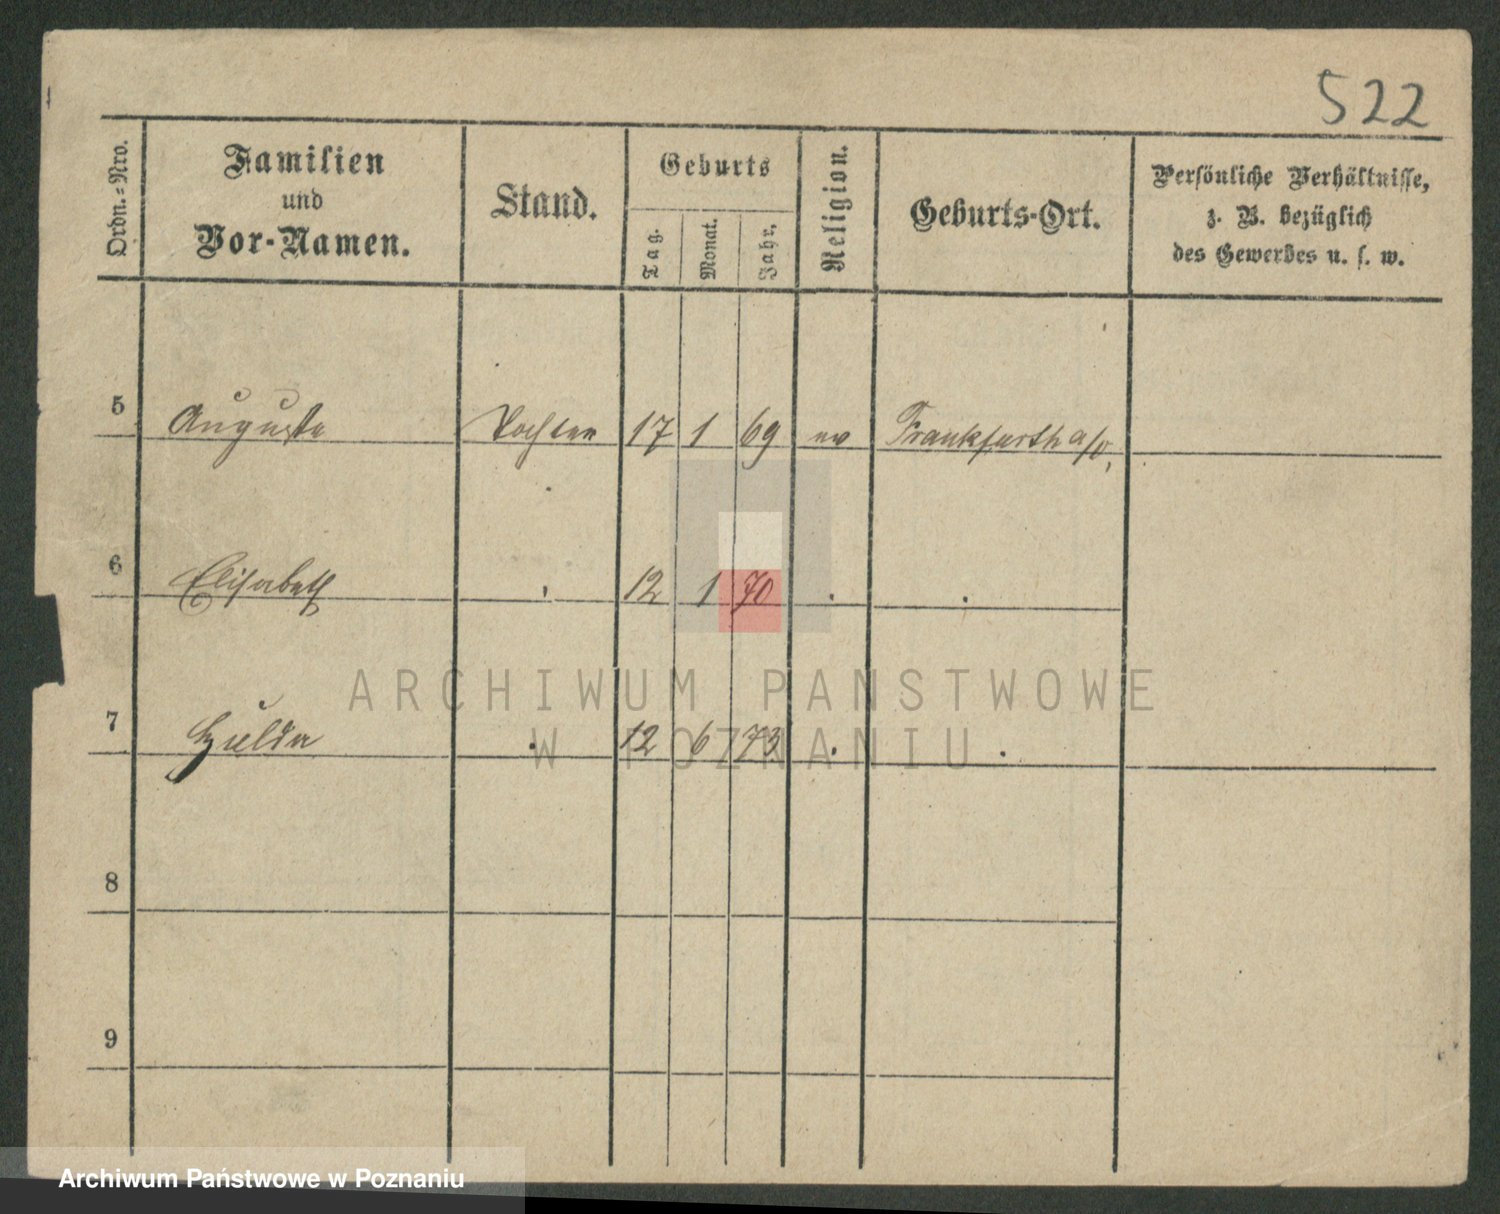 522
Ordn.-Nro.
Familien
und
Vor-Namen.
Stand.
Geburts
Tag.
Monat.
Jahr.
Religion.
Geburts-Ort.
Persönliche Verhältnisse,
z. B. bezüglich
des Gewerbes u. s. w.
5 Auguste Tochter 17 1 69 ev Frankfurth a/O,
6 Elisabeth 12 1 70
7 Hulda 12 6 73
8
9
ARCHIWUM PAŃSTWOWE
W POZNANIU
Archiwum Państwowe w Poznaniu